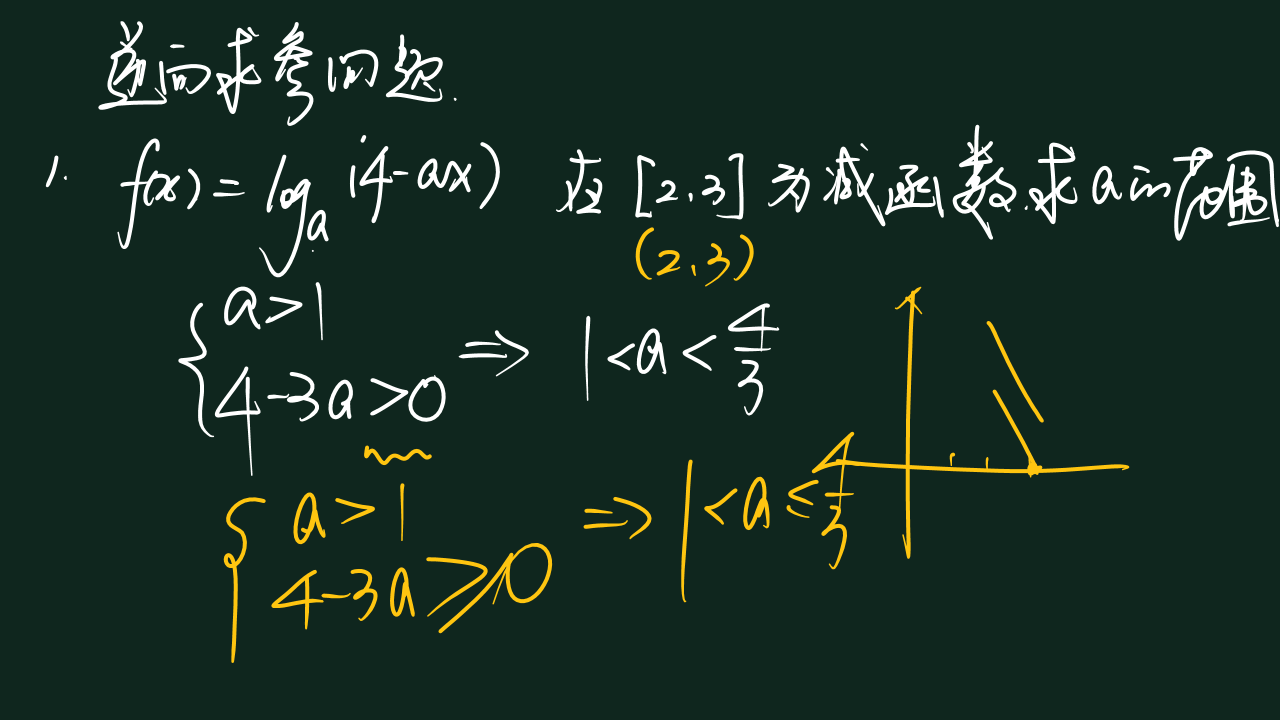 逆向求参问题.
1. f(x)=log_a(4-ax) 在[2,3]为减函数.求a的范围
(2,3)
{ a>1
4-3a>0 ⇒ 1<a<4/3
{ a>1
4-3a≥0 ⇒ 1<a≤4/3